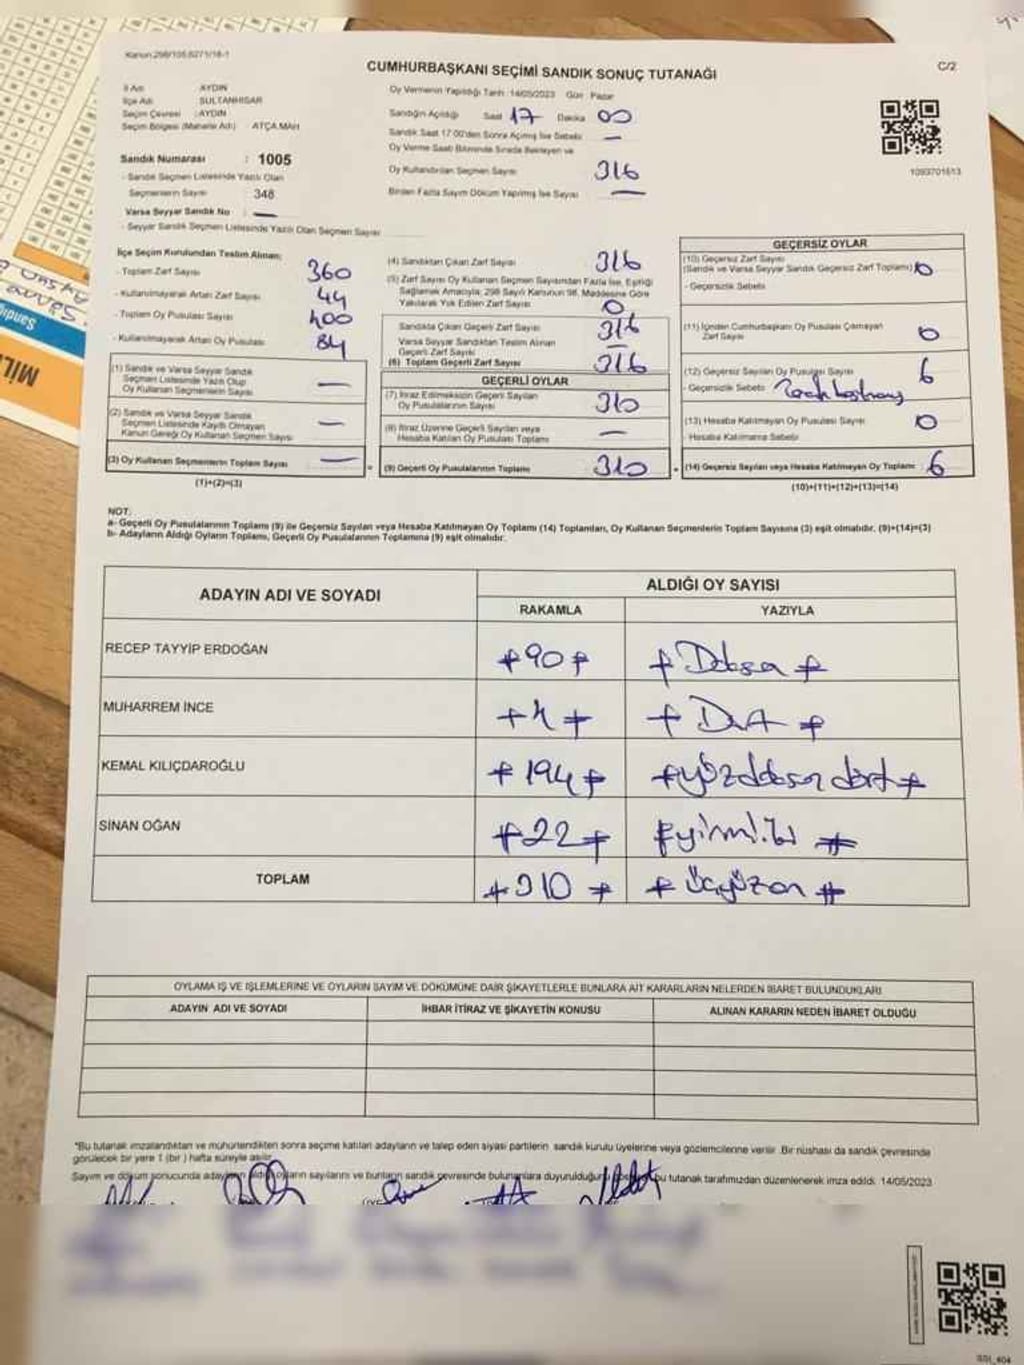 Kanun:298/105,6271/16-1
CUMHURBAŞKANI SEÇİMİ SANDIK SONUÇ TUTANAĞI
C/2
İl Adı AYDIN
İlçe Adı SULTANHİSAR
Seçim Çevresi : AYDIN
Seçim Bölgesi (Mahalle Adı) : ATÇA MAH
Sandık Numarası : 1005
- Sandık Seçmen Listesinde Yazılı Olan
Seçmenlerin Sayısı 348
Varsa Seyyar Sandık No : —
- Seyyar Sandık Seçmen Listesinde Yazılı Olan Seçmen Sayısı
Oy Vermenin Yapıldığı Tarih : 14/05/2023 Gün : Pazar
Sandığın Açıldığı Saat 17 Dakika 00
Sandık Saat 17:00'den Sonra Açılmış İse Sebebi —
Oy Verme Saati Bitiminde Sırada Bekleyen ve
Oy Kullandırılan Seçmen Sayısı 316
Birden Fazla Sayım Döküm Yapılmış İse Sayısı —
1093701613
İlçe Seçim Kurulundan Teslim Alınan:
- Toplam Zarf Sayısı 360
- Kullanılmayarak Artan Zarf Sayısı 44
- Toplam Oy Pusulası Sayısı 400
- Kullanılmayarak Artan Oy Pusulası 84
(1) Sandık ve Varsa Seyyar Sandık
Seçmen Listesinde Yazılı Olup
Oy Kullanan Seçmenlerin Sayısı —
(2) Sandık ve Varsa Seyyar Sandık
Seçmen Listesinde Kayıtlı Olmayan
Kanun Gereği Oy Kullanan Seçmen Sayısı —
(3) Oy Kullanan Seçmenlerin Toplam Sayısı —
(1)+(2)=(3)
(4) Sandıktan Çıkan Zarf Sayısı 316
(5) Zarf Sayısı Oy Kullanan Seçmen Sayısından Fazla İse, Eşitliği
Sağlamak Amacıyla; 298 Sayılı Kanunun 98. Maddesine Göre
Yakılarak Yok Edilen Zarf Sayısı 0
Sandıkta Çıkan Geçerli Zarf Sayısı 316
Varsa Seyyar Sandıktan Teslim Alınan
Geçerli Zarf Sayısı —
(6) Toplam Geçerli Zarf Sayısı 316
GEÇERLİ OYLAR
(7) İtiraz Edilmeksizin Geçerli Sayılan
Oy Pusulalarının Sayısı 310
(8) İtiraz Üzerine Geçerli Sayılan veya
Hesaba Katılan Oy Pusulası Toplamı —
(9) Geçerli Oy Pusulalarının Toplamı 310
GEÇERSİZ OYLAR
(10) Geçersiz Zarf Sayısı
(Sandık ve Varsa Seyyar Sandık Geçersiz Zarf Toplamı) 0
- Geçersizlik Sebebi
(11) İçinden Cumhurbaşkanı Oy Pusulası Çıkmayan
Zarf Sayısı 0
(12) Geçersiz Sayılan Oy Pusulası Sayısı 6
- Geçersizlik Sebebi
(13) Hesaba Katılmayan Oy Pusulası Sayısı 0
- Hesaba Katılmama Sebebi
(14) Geçersiz Sayılan veya Hesaba Katılmayan Oy Toplamı : 6
(10)+(11)+(12)+(13)=(14)
NOT:
a- Geçerli Oy Pusulalarının Toplamı (9) ile Geçersiz Sayılan veya Hesaba Katılmayan Oy Toplamı (14) Toplamları, Oy Kullanan Seçmenlerin Toplam Sayısına (3) eşit olmalıdır. (9)+(14)=(3)
b- Adayların Aldığı Oyların Toplamı, Geçerli Oy Pusulalarının Toplamına (9) eşit olmalıdır.
ADAYIN ADI VE SOYADI
ALDIĞI OY SAYISI
RAKAMLA YAZIYLA
RECEP TAYYİP ERDOĞAN 90 Doksan
MUHARREM İNCE 4 Dört
KEMAL KILIÇDAROĞLU 194 yüzdoksan dört
SİNAN OĞAN 22 yirmi iki
TOPLAM 310 üçyüzon
OYLAMA İŞ VE İŞLEMLERİNE VE OYLARIN SAYIM VE DÖKÜMÜNE DAİR ŞİKAYETLERLE BUNLARA AİT KARARLARIN NELERDEN İBARET BULUNDUKLARI
ADAYIN ADI VE SOYADI İHBAR İTİRAZ VE ŞİKAYETİN KONUSU ALINAN KARARIN NEDEN İBARET OLDUĞU
*Bu tutanak imzalandıktan ve mühürlendikten sonra seçime katılan adayların ve talep eden siyasi partilerin sandık kurulu üyelerine veya gözlemcilerine verilir. Bir nüshası da sandık çevresinde
görülecek bir yere 1 (bir) hafta süreyle asılır.
Sayım ve döküm sonucunda adayların aldığı oyların sayılarını ve bunların sandık çevresinde bulunanlara duyurulduğunu bu tutanak tarafımızdan düzenlenerek imza edildi. 14/05/2023